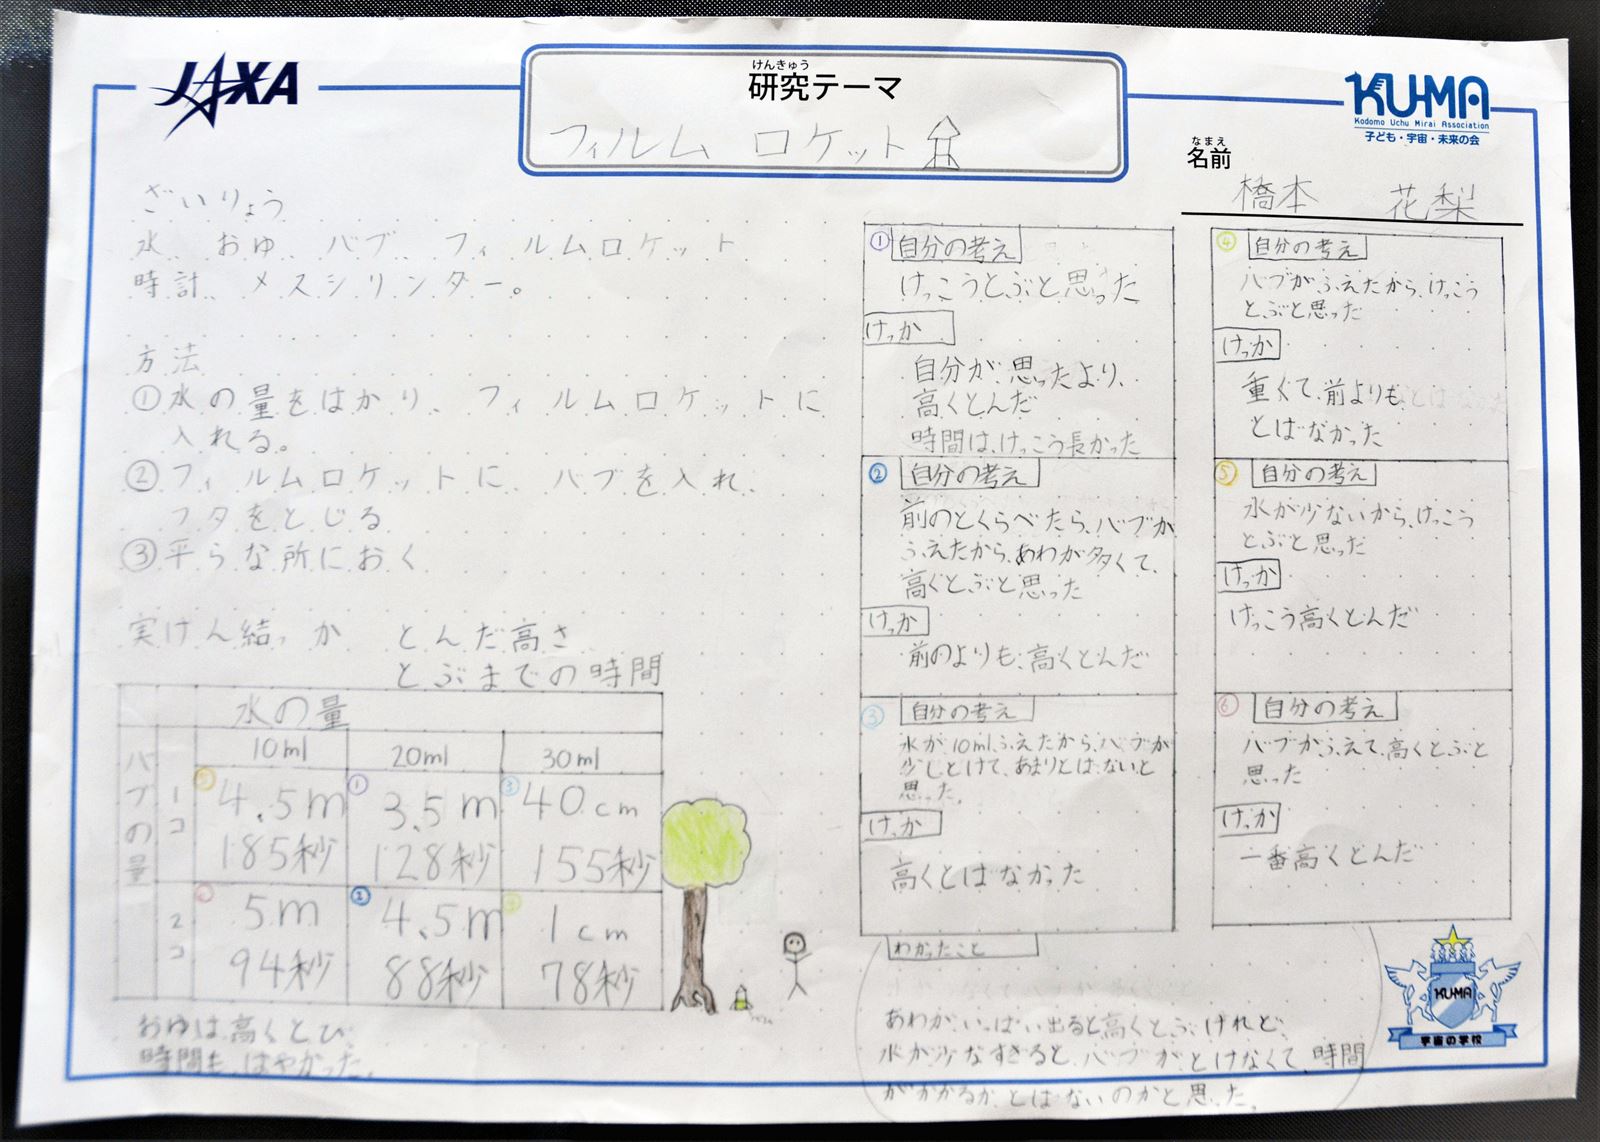 JAXA
けんきゅう
研究テーマ
フィルム ロケット
KU-MA
Kodomo Uchu Mirai Association
子ども・宇宙・未来の会
なまえ
名前
橋本 花梨
ざいりょう
水、おゆ、バブ、フィルムロケット
時計、メスシリンダー。
方法
①水の量をはかり、フィルムロケットに
入れる。
②フィルムロケットに、バブを入れ、
フタをとじる
③平らな所におく
実けん結っか とんだ高さ
とぶまでの時間
水の量
バブの量
10ml 20ml 30ml
1コ
⑤ 4.5m ① 3.5m ③ 40cm
185秒 128秒 155秒
2コ
⑥ 5m ② 4.5m ④ 1cm
94秒 88秒 78秒
おゆは高くとび、
時間も、はやかった。
① 自分の考え
けっこうとぶと思った
けっか
自分が、思ったより、
高くとんだ
時間は、けっこう長かった
② 自分の考え
前のとくらべたら、バブが
ふえたから、あわが多くて、
高くとぶと思った
けっか
前のよりも、高くとんだ
③ 自分の考え
水が10mlふえたから、バブが
少しとけて、あまりとばないと
思った。
けっか
高くとばなかった
④ 自分の考え
バブがふえたから、けっこう
とぶと思った
けっか
重くて、前よりも
とばなかった
⑤ 自分の考え
水が少ないから、けっこう
とぶと思った
けっか
けっこう高くとんだ
⑥ 自分の考え
バブがふえて、高くとぶと
思った
けっか
一番高くとんだ
わかったこと
あわが、いっぱい出ると高くとぶけれど、
水が少なすぎると、バブがとけなくて、時間
がかかるか、とばないのかと思った。
KU-MA
宇宙の学校